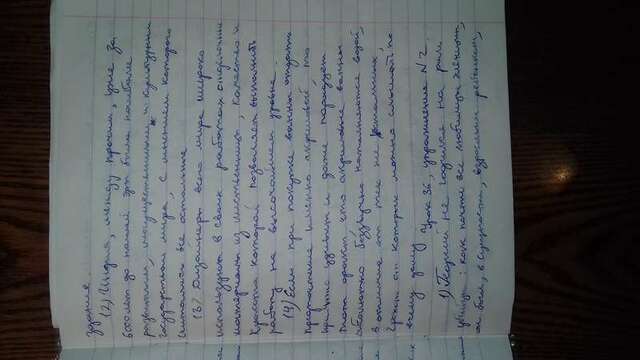 здание.
(2) Индия, между прочим, уже за
6000 лет до нашей эры была наиболее
развитым, могущественным и культурным
государством мира, с мнением которого
считались все остальные
(3) Дизайнеры всего мира широко
используют в своих работах отделочные
материалы из лиственницы, качество и
красота которой позволяет выполнить
работу на высочайшем уровне.
(4) Если при покупке ванны отдать
предпочтение именно акриловой, то
вас удивит и даже порадует
тот факт, что акриловые ванны
абсолютно беззвучно наполняются водой,
в отличие от тех же стальных,
грохот от которых можно слышать по
всему дому
Урок 36, упражнение №2.
1) Георгий не годился на роль
убийцы: как почти все любимцы женщин,
он был, в сущности, взрослым ребенком,